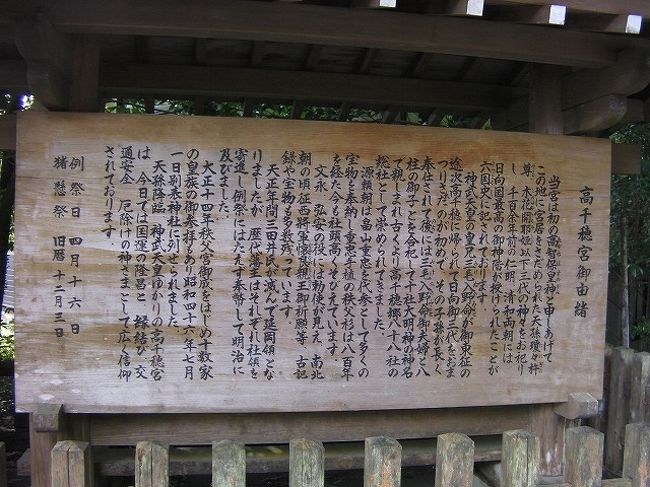 高千穂宮御由緒
当宮は初め高智保皇神と申しあげて
この地に宮居をさだめられた天孫瓊々杵
尊、木花開耶姫以下三代の神々をお祀り
し、千百余年前の仁明、清和両朝には
日向国最高の御神階が授けられたことが
六国史に記されております。
神武天皇の皇兄三毛入野命が御東征の
途次高千穂に帰られて日向御三代をおま
つりさだのが初めて、その子孫が長く
奉仕されて後には三毛入野命御夫婦と八
柱の御子とを合祀して十社大明神の神名
で親しまれ古くより高千穂郷八十八社の
総社として崇められてきました。
源頼朝は畠山重忠を代参として多くの
宝物を奉納し重忠手植の秩父杉は八百年
を経た今も社頭高くそびえています。
文永、弘安の役には勅使が見え、南北
朝の頃征西将軍懐良親王御祈願等、古記
録や宝物も多数残っています。
天正年間三田井氏が滅んで延岡領とな
りましたが、歴代藩主はそれぞれ社領を
寄進し例祭にはたえず奉幣して明治に
及びました。
大正十四年秩父宮御成をはじめ十数家
の皇族の御参拝もあり昭和四十六年七月
一日別表神社に列せられました。
天孫降臨、神武天皇ゆかりの高千穂宮
は、今日では国運の隆昌と、縁結び、交
通安全、厄除けの神さまとして広く信仰
されております。
例祭日 四月十六日
猪懸祭 旧暦 十二月三日